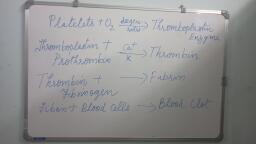 Platelets + O₂ → Thromboplastin
Enzyme
Thromboplastin + Ca⁺
Prothrombin K → Thrombin
Thrombin + → Fibrin
Fibrinogen
Fibrin + Blood Cells → Blood Clot